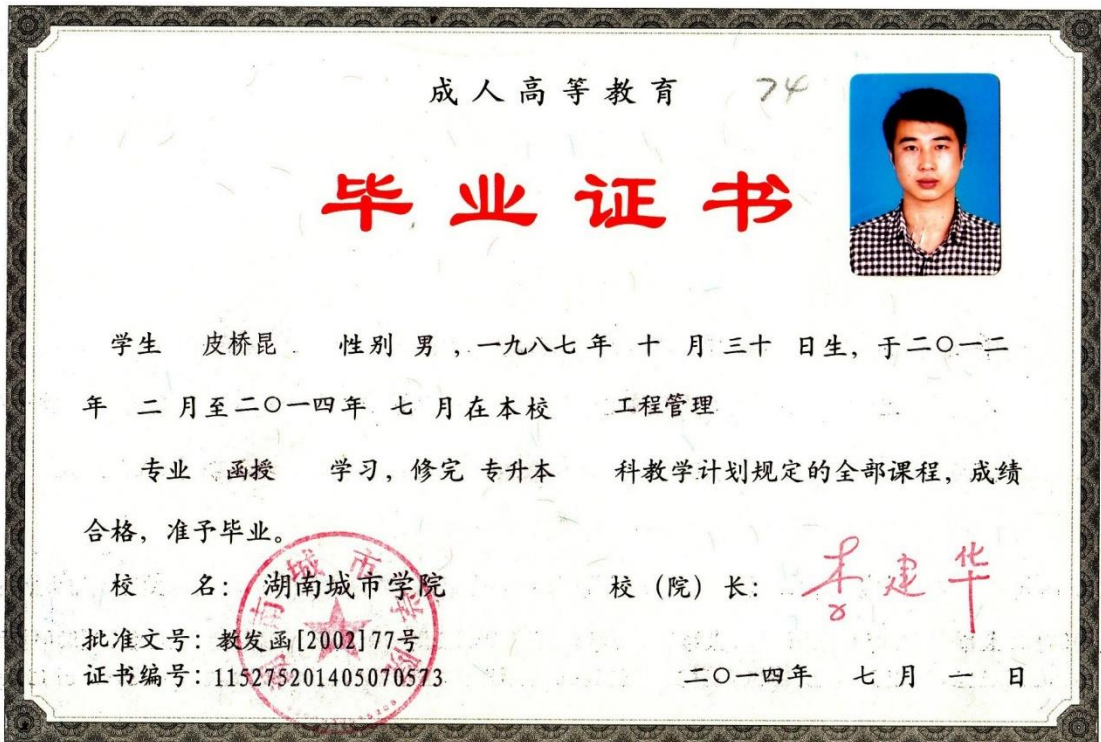 成人高等教育 74
毕业证书
学生 皮桥昆 性别 男 ，一九八七 年 十 月 三十 日生，于二〇一二
年 二 月至二〇一四年 七 月在本校 工程管理
专业 函授 学习，修完 专升本 科教学计划规定的全部课程，成绩
合格，准予毕业。
校 名： 湖南城市学院 校（院）长： 李建华
批准文号：教发函[2002]77号
证书编号：115275201405070573 二〇一四年 七 月 一 日
湖南城市学院